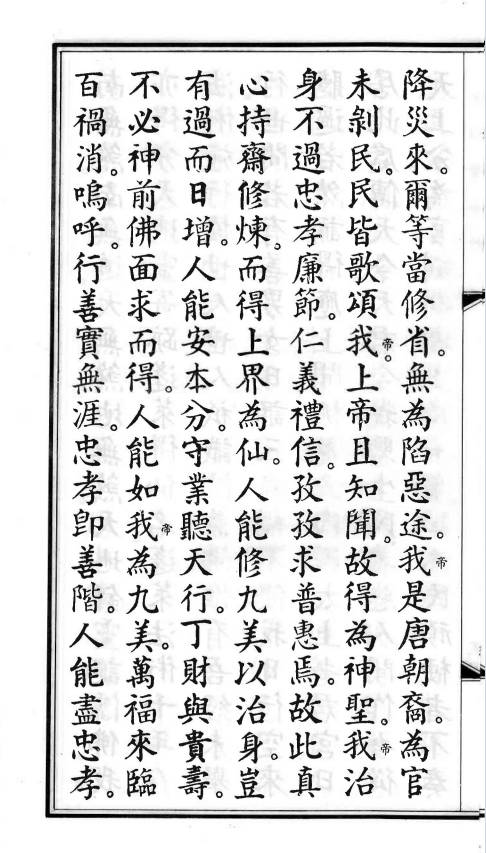 降災來。爾等當修省。無為陷惡途。我帝是唐朝裔。為官
未剝民。民皆歌頌我帝。上帝且知聞。故得為神聖。我帝治
身不過忠孝廉節。仁義禮信。孜孜求普惠焉。故此真
心持齋修煉。而得上界為仙。人能修九美以治身。豈
有過而日增。人能安本分。守業聽天行。丁財與貴壽。
不必神前佛面求而得。人能如我帝為九美。萬福來臨
百禍消。嗚呼。行善實無涯。忠孝卽善階。人能盡忠孝。